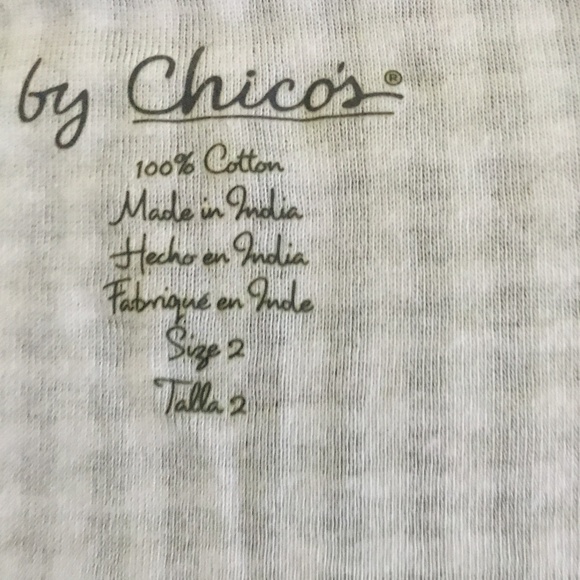 by Chico's®
100% Cotton
Made in India
Hecho en India
Fabriqué en Inde
Size 2
Talla 2